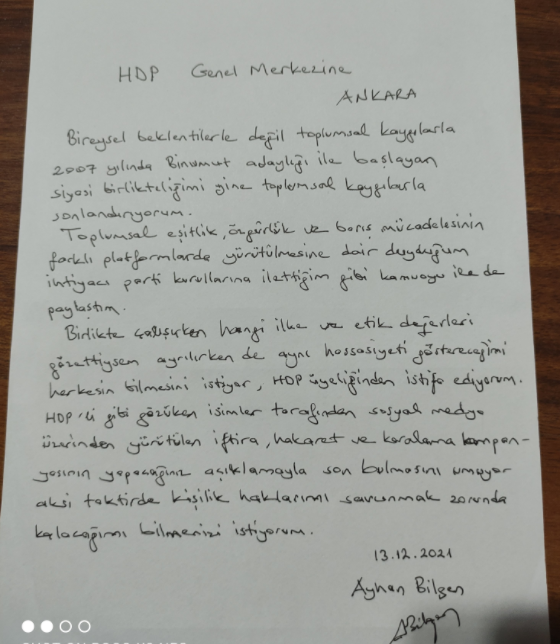 HDP Genel Merkezine
ANKARA
Bireysel beklentilerle değil toplumsal kaygılarla
2007 yılında Binumut adaylığı ile başlayan
siyasi birlikteliğimi yine toplumsal kaygılarla
sonlandırıyorum.
Toplumsal eşitlik, özgürlük ve barış mücadelesinin
farklı platformlarda yürütülmesine dair duyduğum
ihtiyacı parti kurullarına ilettiğim gibi kamuoyu ile de
paylaştım.
Birlikte çalışırken hangi ilke ve etik değerleri
gözettiysem ayrılırken de aynı hassasiyeti göstereceğimi
herkesin bilmesini istiyor, HDP üyeliğinden istifa ediyorum.
HDP'li gibi gözüken isimler tarafından sosyal medya
üzerinden yürütülen iftira, hakaret ve karalama kampan-
yasının yapacağınız açıklamayla son bulmasını umuyor
aksi taktirde kişilik haklarımı savunmak zorunda
kalacağımı bilmenizi istiyorum.
13.12.2021
Ayhan Bilgen
ABilgen